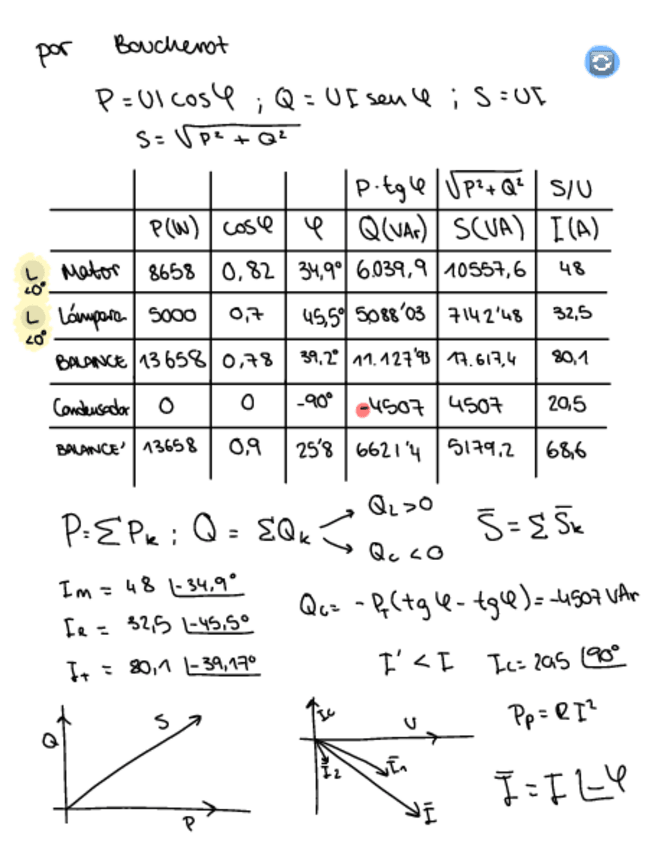 por Boucherot
P = UI cosφ ; Q = UI senφ ; S = UI
S = √P² + Q²
P·tgφ √P²+Q² S/U
P(W) cosφ φ Q(VAr) S(VA) I(A)
L <0° Motor 8658 0,82 34,9° 6.039,9 10557,6 48
L <0° Lámpara 5000 0,7 45,5° 5088'03 7142'48 32,5
BALANCE 13658 0,78 39,2° 11.127'93 17.617,4 80,1
Condensador 0 0 -90° -4507 4507 20,5
BALANCE' 13658 0,9 25'8 6621'4 5179,2 68,6
P = ΣPk ; Q = ΣQk QL>0 S̄ = Σ S̄k
Qc<0
Im = 48 ∟-34,9°
Qc = -PT(tgφ - tgφ) = -4507 VAr
IR = 32,5 ∟-45,5°
I+ = 80,1 ∟-39,17°
I' < I Ic = 20,5 ∟90°
Pp = RI²
Q S P
Ic U Ī2 Ī1 Ī
Ī = I ∟-φ